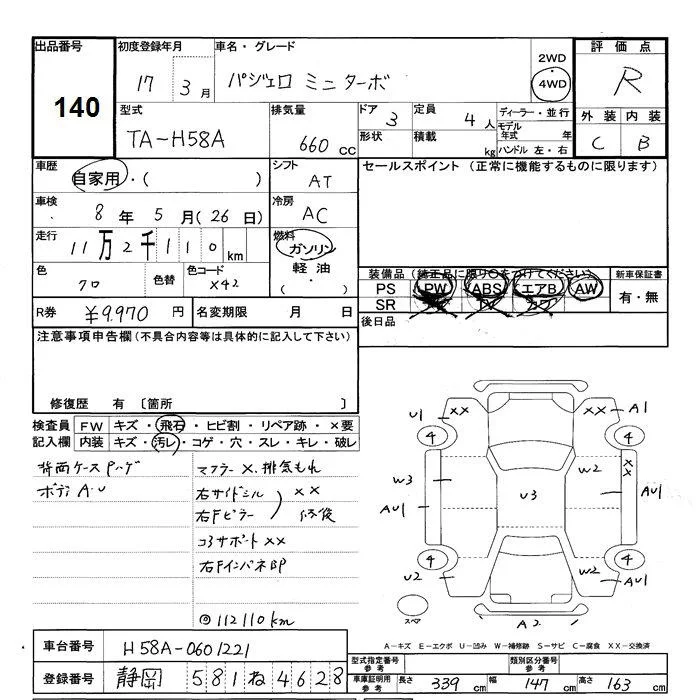 出品番号 140
初度登録年月 17 3月
車名・グレード パジェロ ミニ ターボ
2WD
4WD
評価点 R
外装 内装
C B
型式 TA-H58A
排気量 660 cc
ドア 3
定員 4人
ディーラー・並行
モデル年式 年
形状
積載 kg
ハンドル 左・右
車歴 自家用・( )
シフト AT
セールスポイント (正常に機能するものに限ります)
車検 8年 5月(26日)
冷房 AC
走行 11万2千110km
燃料 ガソリン
軽油
( ・ )
色 クロ
色替
色コード X42
装備品 (純正品に限り○をつけてください)
新車保証書
PS PW ABS エアB AW
有・無
SR
R券 ¥9,970円
名変期限 月 日
後日品
注意事項申告欄(不具合内容等は具体的に記入して下さい)
修復歴 有 〔箇所 〕
検査員記入欄
FW キズ・飛石・ヒビ割・リペア跡・×要
内装 キズ・汚レ・コゲ・穴・スレ・キレ・破レ
背面ケース
ボディ A・U
マフラー ×、排気もれ
右サイドシル
右Fピラー
××
修復
コアサポート ××
右Fインパネ
◎112110km
U1 ×× ×× A1
4 4
W3 W2 ××
AU1 U3 AU1
4 4
U2 W2 AU1
スペア
A2
A-キズ E-エクボ U-凹み W-補修跡 S-サビ C-腐食 XX-交換済
車台番号 H58A-0601221
登録番号 静岡 581 ね 4628
型式指定番号 参考
類別区分番号 参考
車庫証明用 参考
長さ 339 cm 幅 147 cm 高さ 163 cm